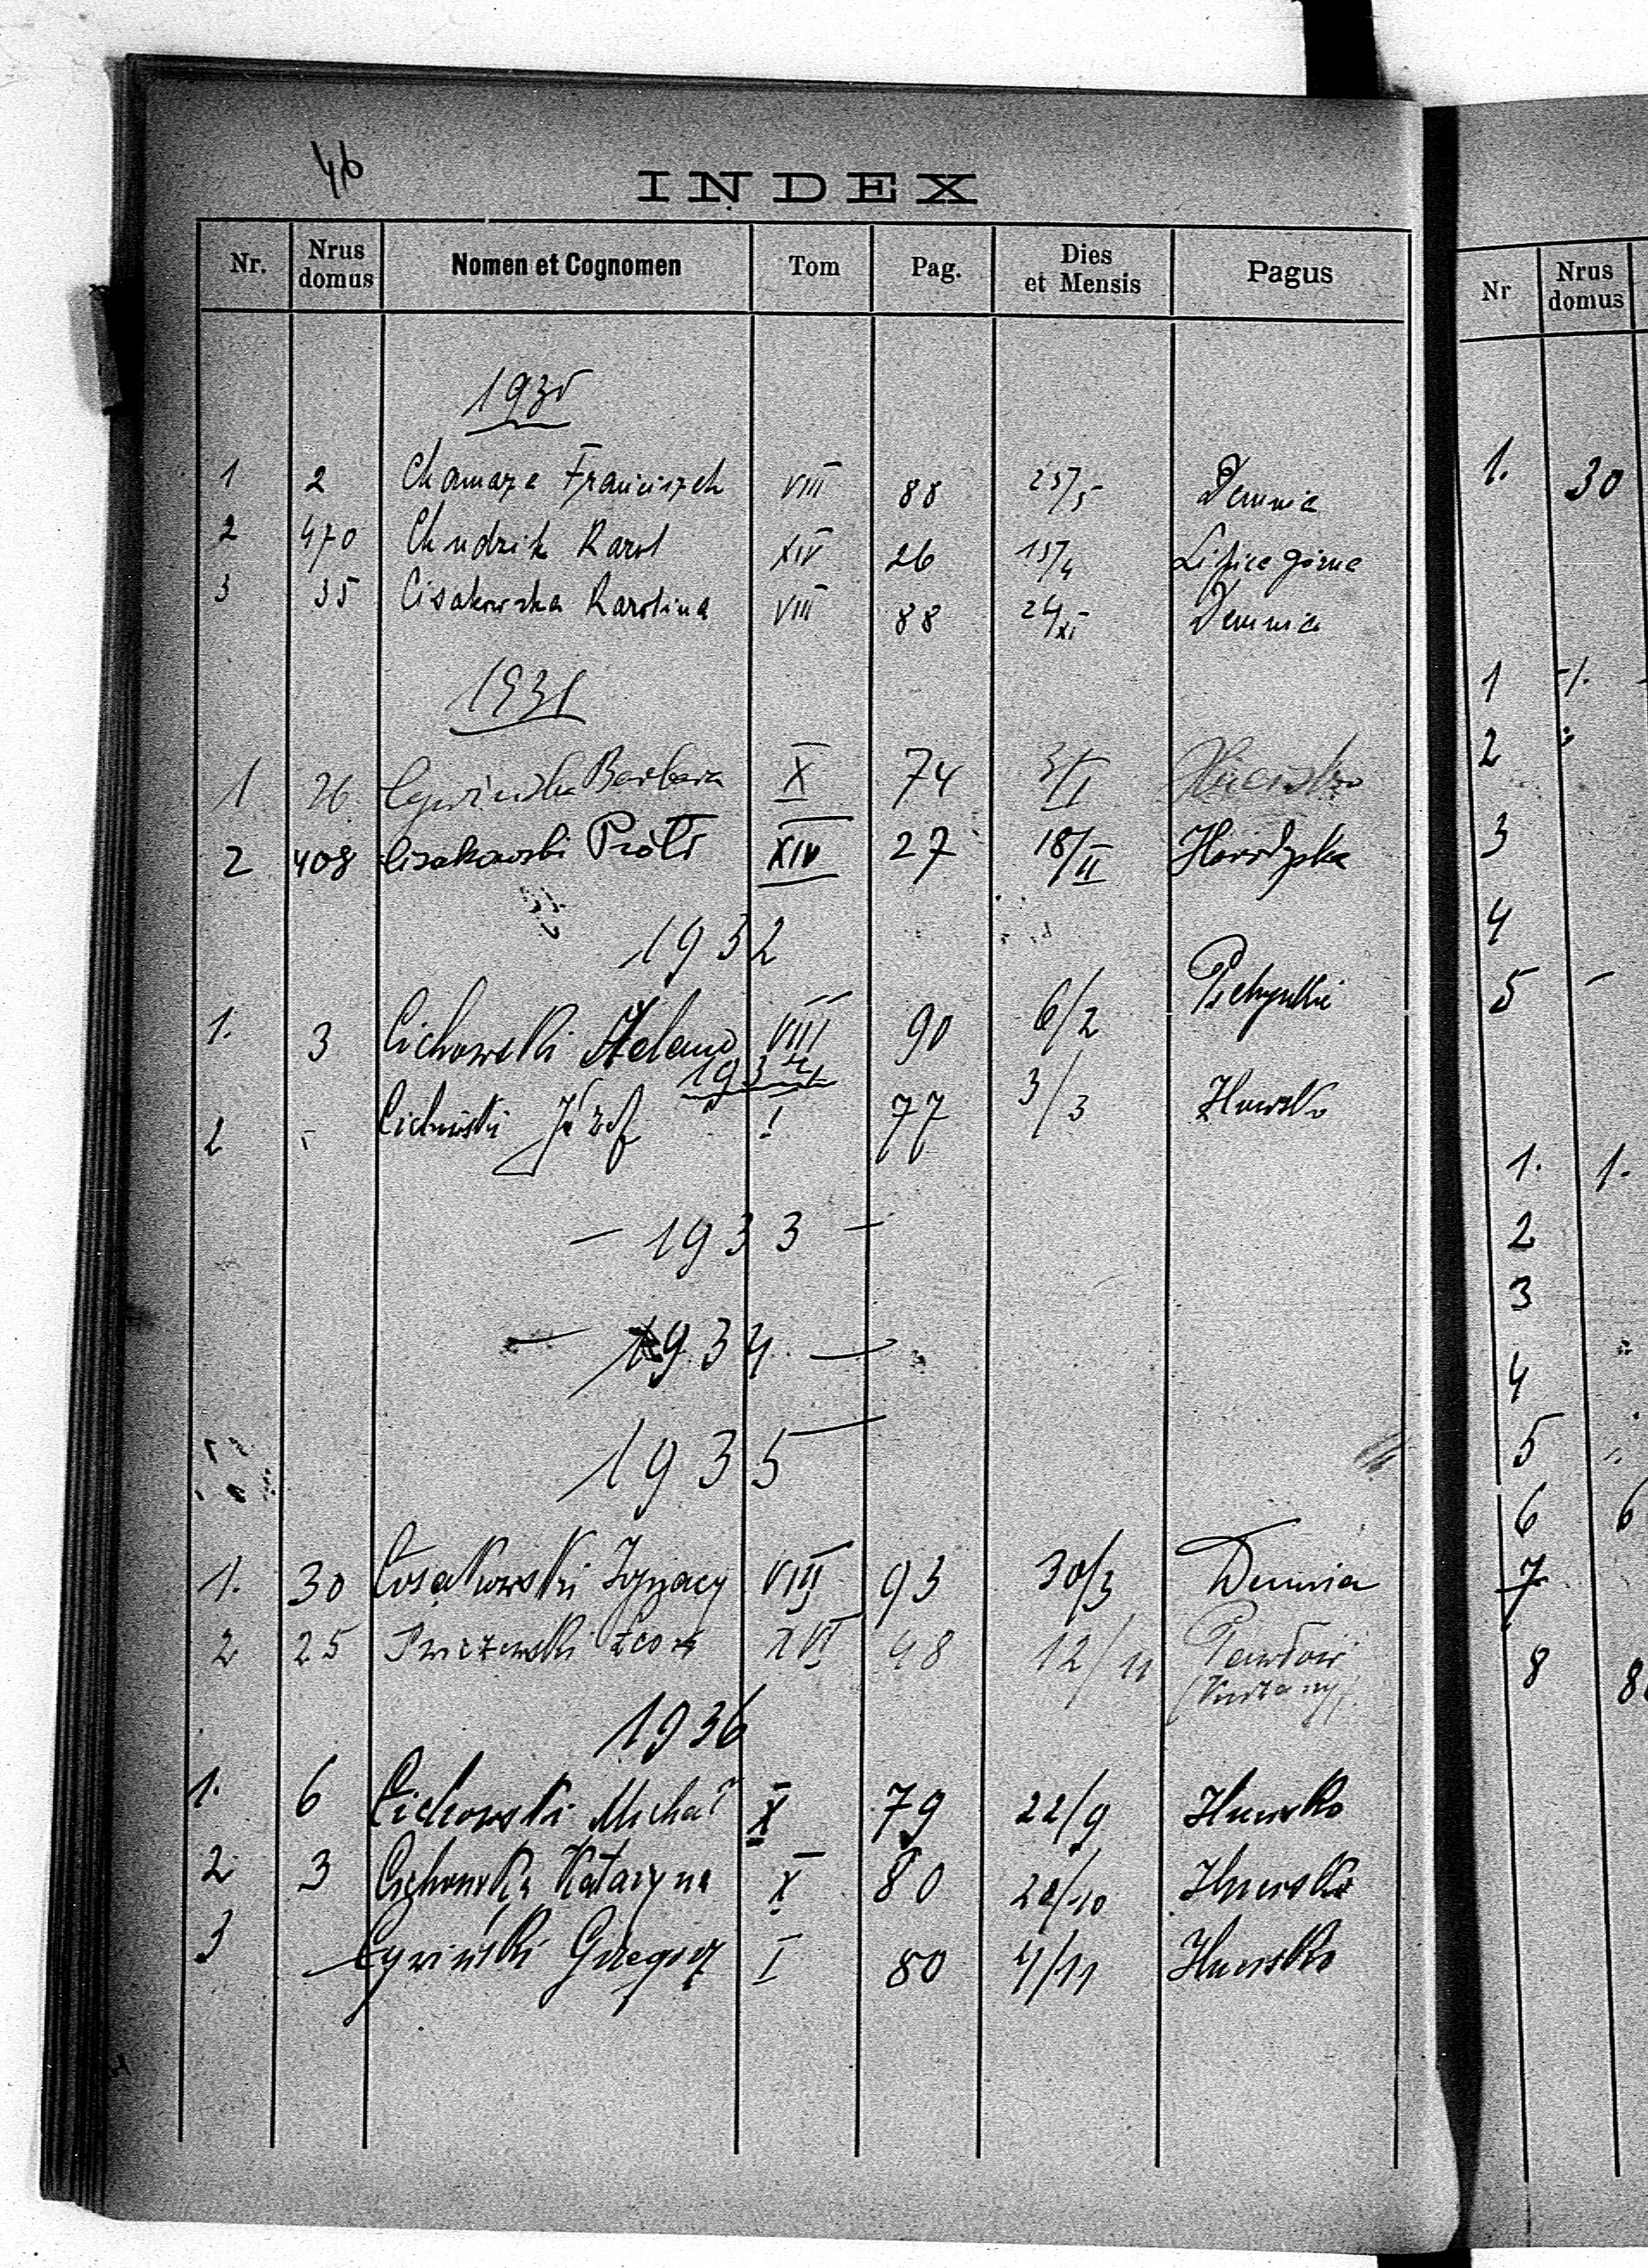 46
INDEX
Nr. Nrus domus Nomen et Cognomen Tom Pag. Dies et Mensis Pagus
1930
1 2 Franciszek VIII 88 25/5 Demnia
2 470 Chudzik Karol XIV 26 15/4 Lipice górne
3 35 Cisakowska Karolina VIII 88 24/XI Demnia
1931
1 26 Cywińska Barbara X 74 3/I
2 408 Cisakowski Piotr XIV 27 18/II
1932
1. 3 Cichowski VIII 90 6/2
1932
2 - Józef 77 3/3 Huwsko
- 1933 -
- 1934 -
1935
1. 30 Cosakowski Ignacy VIII 93 30/3 Demnia
2 25 Leon XVI 48 12/11 Pawłów
1936
1. 6 Cichowski Michał X 79 22/9 Hucisko
2 3 Cichowska Katarzyna X 80 /10 Hucisko
3 Cywiński Grzegorz I 80 4/11 Hucisko
Nr Nrus domus
1. 30
1
2
3
4
5 -
1. 1.
2
3
4
5
6 6
7
8